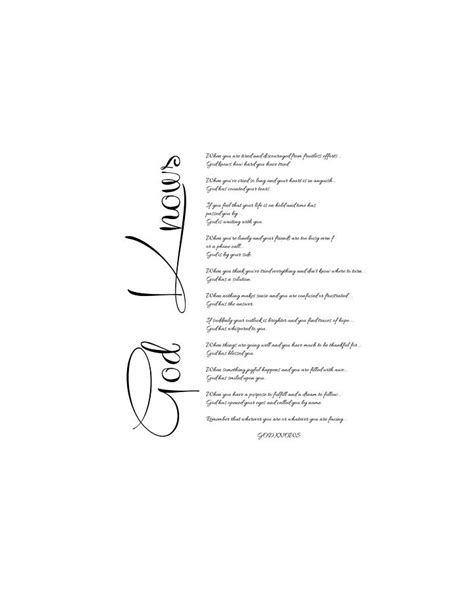 God Knows
When you are tired and discouraged from fruitless efforts...
God knows how hard you have tried.
When you've cried so long and your heart is in anguish...
God has counted your tears.
If you feel that your life is on hold and time has
passed you by...
God is waiting with you.
When you're lonely and your friends are too busy even f
or a phone call...
God is by your side.
When you think you've tried everything and don't know where to turn...
God has a solution.
When nothing makes sense and you are confused or frustrated...
God has the answer.
If suddenly your outlook is brighter and you find traces of hope...
God has whispered to you.
When things are going well and you have much to be thankful for...
God has blessed you.
When something joyful happens and you are filled with awe...
God has smiled upon you.
When you have a purpose to fulfill and a dream to follow...
God has opened your eyes and called you by name.
Remember that wherever you are or whatever you are facing...
GOD KNOWS